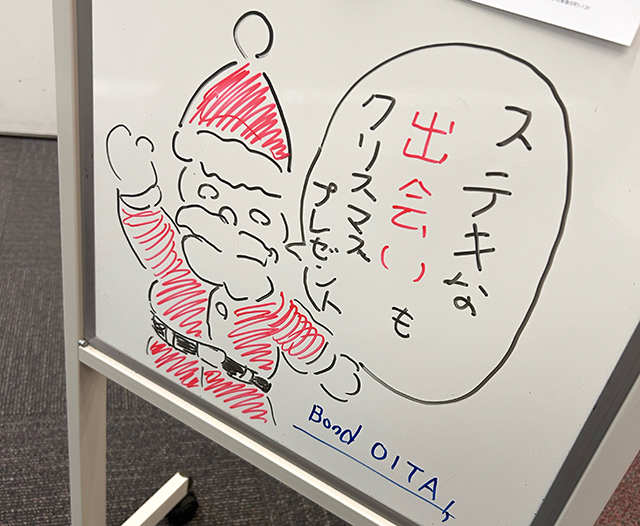 ステキな
出会いも
クリスマス
プレゼント
Bond OITA